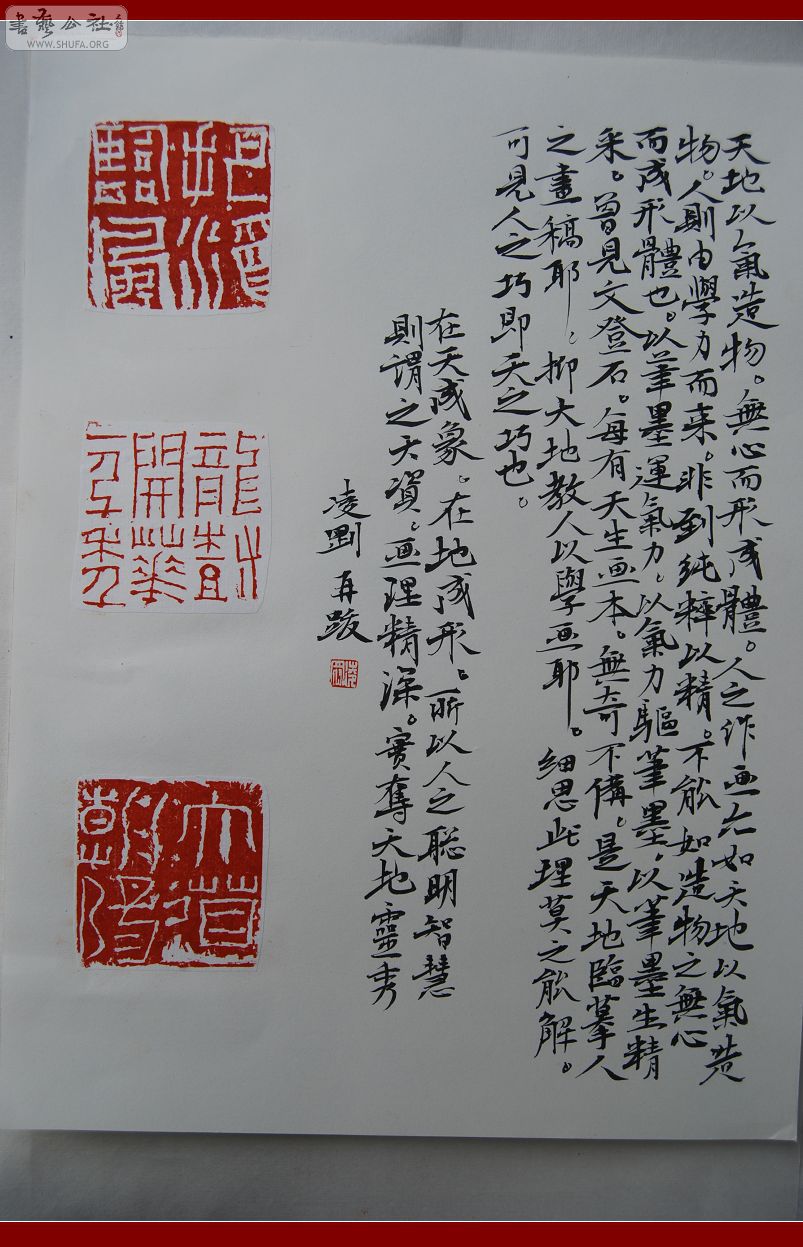 書藝公社
WWW.SHUFA.ORG
天地以氣造物。無心而形成體。人之作画亦如天地以氣造
物。人則由學力而来。非到純粹以精。不能如造物之無心
而成形體也。以筆墨運氣力。以氣力驅筆墨，以筆墨生精
采。曾見文登石。每有天生画本。無奇不備。是天地臨摹人
之畫稿耶。抑天地教人以學画耶。細思此理莫之能解。
可見人之巧即天之巧也。
在天成象。在地成形。所以人之聡明智慧
則謂之天資。画理精深。實奪天地靈秀
凌剛再跋